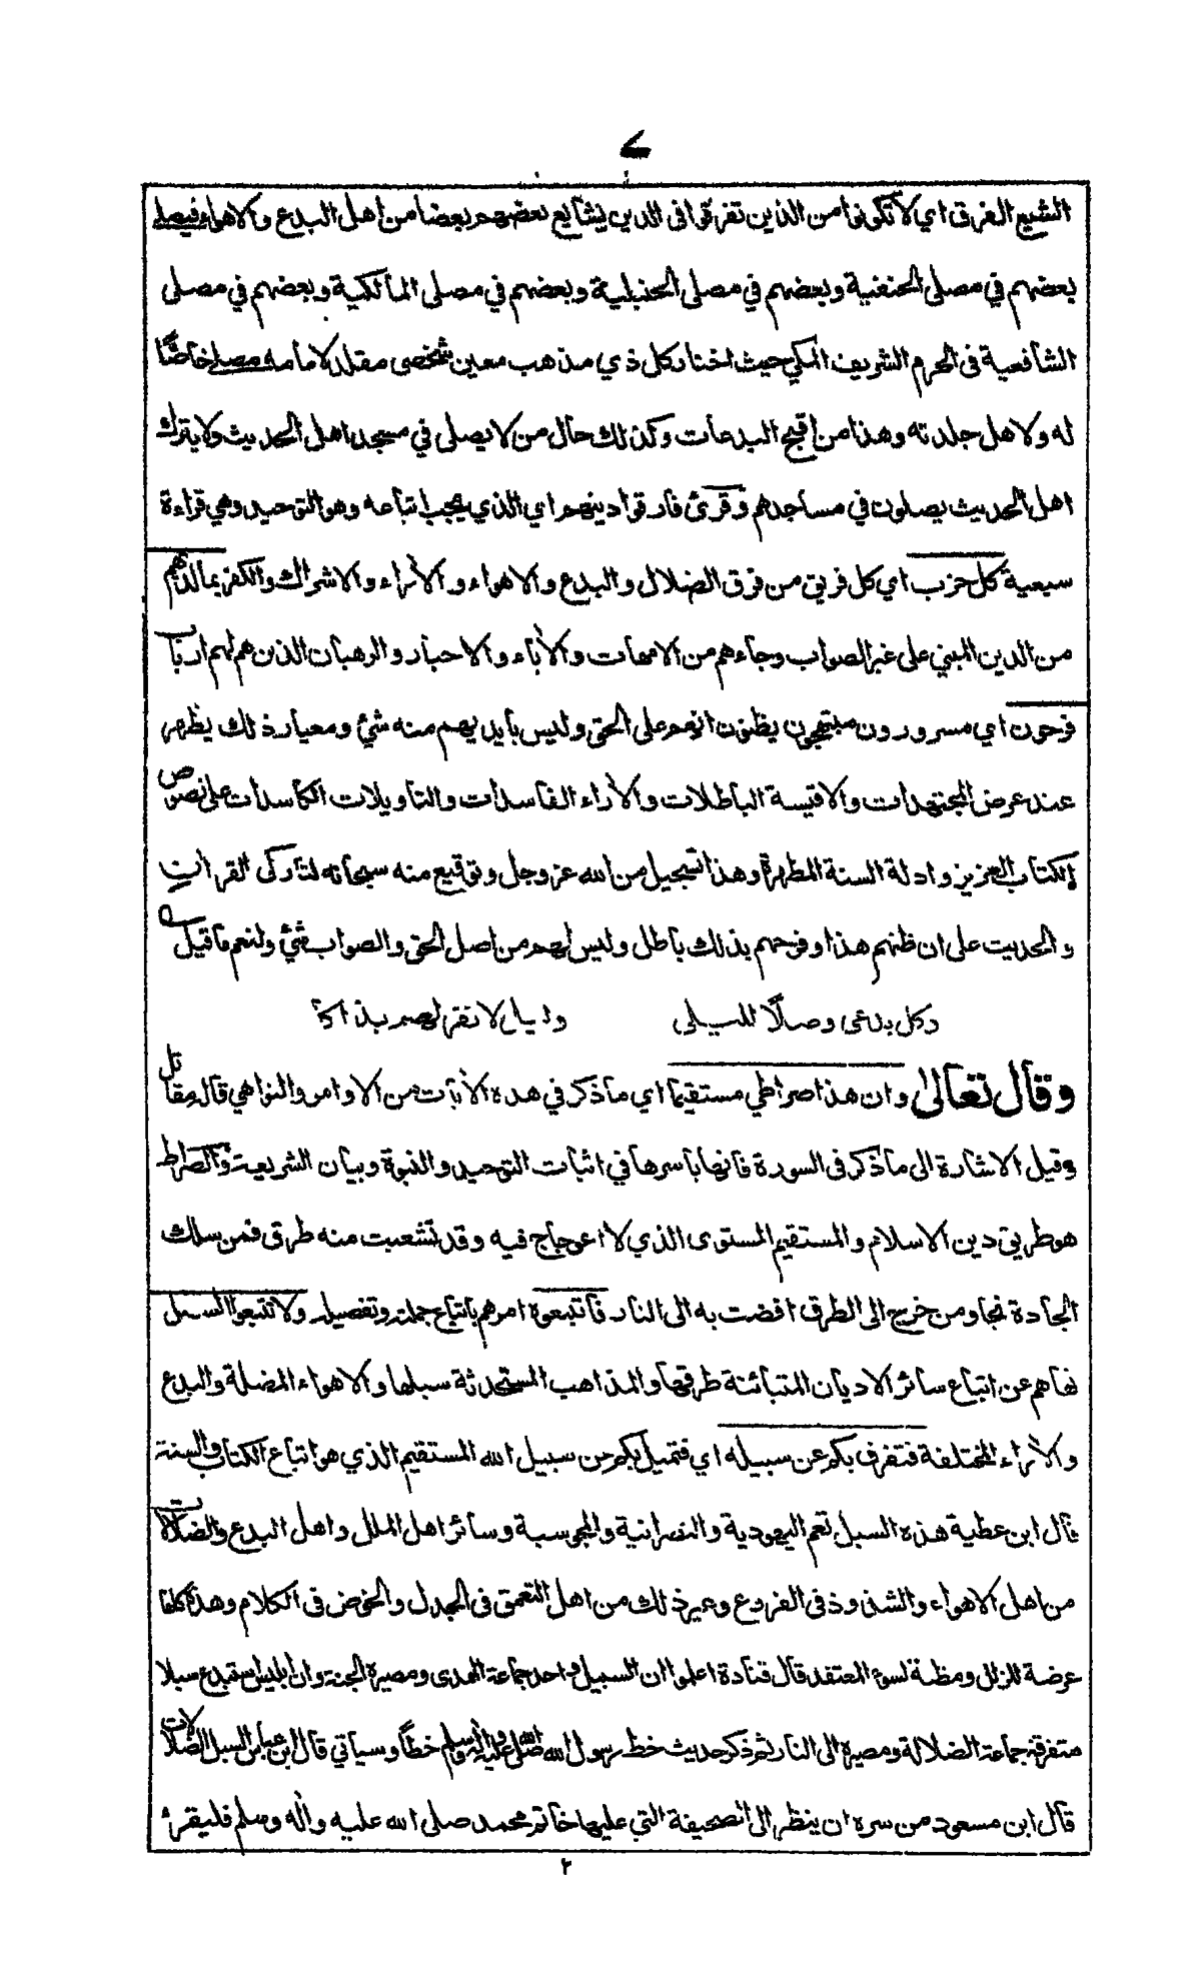 الشيع الفرق اي لا تكونوا من الذين تفرقوا فى الدين يشايع بعضهم بعضا من اهل البدع والاهواء فيصلے
بعضهم في مصلى الحنفية وبعضهم في مصلى الحنبلية وبعضهم في مصلى المالكية وبعضهم في مصلى
الشافعية فى الحرم الشريف المكي حيث اختار كل ذي مذهب معين شخصى مقلد لامامه مصلے خاصًّا
له ولاهل جلدته وهذا من اقبح البدعات وكذلك حال من لا يصلى في مسجد اهل الحديث ولا يترك
اهل الحديث يصلون في مساجدهم وقرئ فارقوا دينهم اي الذي يجب اتباعه وهو التوحيد وهي قراءة
سبعية كل حزب اي كل فريق من فرق الضلال والبدع والاهواء والأراء والاشراك والكفر بما لديهم
من الدين المبني على غير الصواب وجاءهم من الامهات والأباء والاحبار والرهبان الذين هم لهم ارباب
فرحون اي مسرورون مبتهجون يظنون انهم على الحق وليس بأيديهم منه شئ ومعيار ذلك يظهر
عند عرض المجتهدات والاقيسة الباطلات والأراء الفاسدات والتاويلات الكاسدات على نصوص
الكتاب العزيز وادلة السنة المطهرة وهذا تسجيل من الله عز وجل وتوقيع منه سبحانه لتاركى القرأن
والحديث على ان ظنهم هذا وفرحهم بذلك باطل وليس لهم من اصل الحق والصواب شئ ولنعم ما قيل ه
وكل يدعى وصلًا لليلى وليلى لا تقر لهم بذاكا
وقال تعالى وان هذا صراطي مستقيما اي ما ذكر في هذه الأيات من الاوامر والنواهي قاله مقاتل
وقيل الاشارة الى ما ذكر فى السورة فانها بأسرها في اثبات التوحيد والنبوة وبيان الشريعة والصراط
هو طريق دين الاسلام والمستقيم المستوى الذي لا اعوجاج فيه وقد تشعبت منه طرق فمن سلك
الجادة نجا ومن خرج الى الطرق افضت به الى النار فاتبعوه امرهم باتباع جملته وتفصيله ولا تتبعوا السبل
نهاهم عن اتباع سائر الاديان المتبائنة طرقها والمذاهب المستحدثة سبلها والاهواء المضلة والبدع
والأراء المختلفة فتفرق بكم عن سبيله اي فتميل بكم عن سبيل الله المستقيم الذي هو اتباع الكتاب والسنة
قال ابن عطية هذه السبل تعم اليهودية والنصرانية والمجوسية وسائر اهل الملل واهل البدع والضلالات
من اهل الاهواء والشذوذ فى الفروع وغير ذلك من اهل التعمق فى الجدل والخوض فى الكلام وهذه كلها
عرضة للزلل ومظنة لسوء المعتقد قال قتادة اعلموا ان السبيل واحد جماعة الهدى ومصيره الجنة وان ابليس ستبدع سبلا
متفرقة جماعة الضلالة ومصيره الى النار ثم ذكر حديث خط رسول الله صلى الله عليه واله وسلم خطًّا وسيأتي قال ابن عباس السبل الضلالات
قال ابن مسعود من سره ان ينظر الى الصحيفة التي عليها خاتم محمد صلى الله عليه وأله وسلم فليقرء
٢